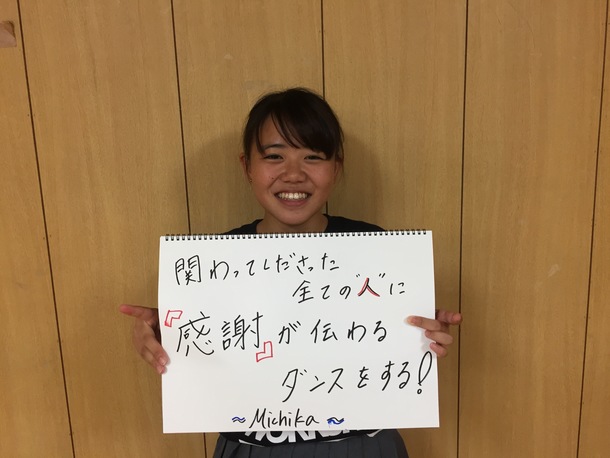 関わってしださった
全ての"人"に
『感謝』が伝わる
ダンスをする!
~ Michika ~